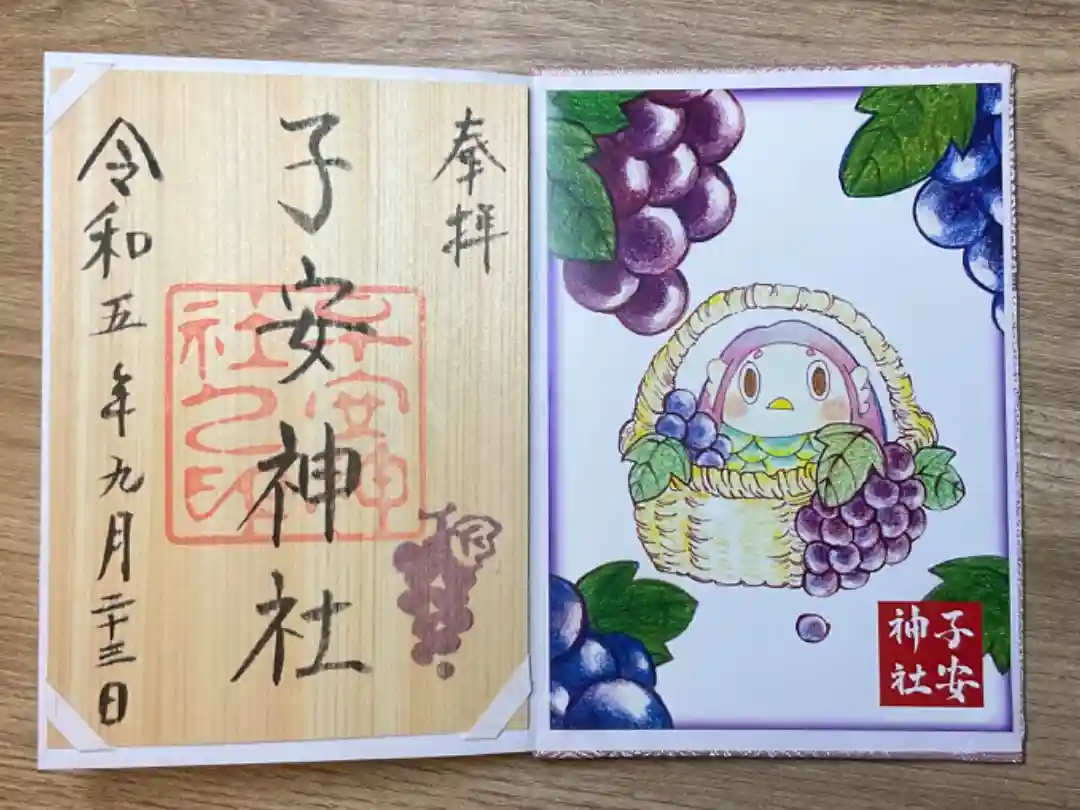 奉拝
子安神社
子安神社之印
令和五年九月二十三日
子安
神社